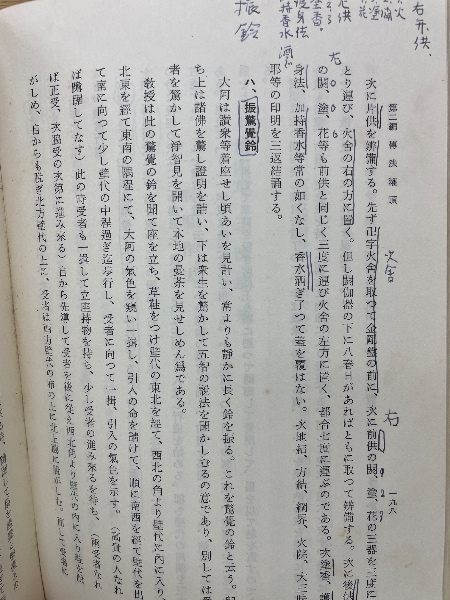 右 前供
振鈴
持香水 洒
第二編 傳法灌頂
一九八
火舎
右
右
次に片供を辨備する。先ず卍字火舎を取つて金剛盤の前に、次に前供の閼、塗、花の三器を三度に
とり運び、火舎の右の方に置く。但し閼伽器の下に八春日があればともに取つて辨備する。次に後供
の閼、塗、花等も前供と同じく三度に運び火舎の左方に置く、都合七度に運ぶのである。次塗香、護
身法、加持香水等常の如くなし、香水洒ぎ了つて蓋を覆はない。次地結、方結、網界、火院、大三昧
耶等の印明を三返結誦する。
八、振驚覺鈴
大阿は讃衆等着座せし頃あいを見計い、常よりも靜かに長く鈴を振る。これを驚覺の鈴と云う。即
ち上は諸佛を驚し證明を請い、下は衆生を驚かして五智の説法を聞かしむるの意であり、別しては受
者を驚かして淨智見を開いて本地の曼荼を見せしめん爲である。
教授は此の驚覺の鈴を聞て座を立ち、草鞋をつけ壁代の東北を經て、西北の角より壁代に内に入り、
北東を經て東南の隅程にて、大阿の氣色を窺い一揖し、引入の命を請けて、順に南西を經て壁代を出
て南に向つて少し壁代の中程過ぎ迄歩行し、受者に向つて一揖、引入の氣色を示す。(高貴の人なれ
ば蹲踞してなす)此の時受者も一畏して立座持物を持ち、少し受者の進み來るを待ち、(兩受者なれ
ば正受、次脇受の次第に進み來る)自から先達して受者を後に從え西北角より壁代の内に入り香を